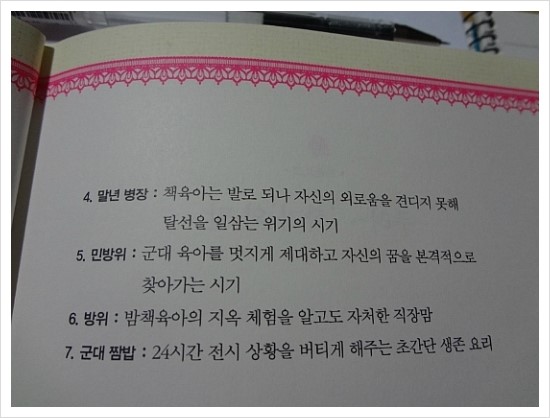 4. 말년 병장 : 책육아는 발로 되나 자신의 외로움을 견디지 못해
탈선을 일삼는 위기의 시기
5. 민방위 : 군대 육아를 멋지게 제대하고 자신의 꿈을 본격적으로
찾아가는 시기
6. 방위 : 밤책육아의 지옥 체험을 알고도 자처한 직장맘
7. 군대 짬밥 : 24시간 전시 상황을 버티게 해주는 초간단 생존 요리